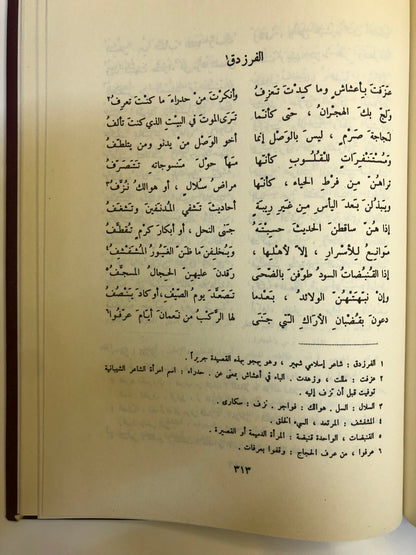 الفرزدق١
عزفتَ بأعشاشٍ وما كِدتَ تَعزِفُ وأنكرْتَ من حَدراءَ ما كنتَ تعرِفُ٢
ولجّ بكَ الهجرانُ ، حتى كأنما ترى الموتَ في البيتِ الذي كنتَ تألَفُ
لجاجةَ صَرْمٍ ، ليس بالوَصلِ إنما أخو الوَصلِ من يدنو ومن يتلطّفُ
ومُستنفِراتٍ للقُلوبِ كأنها مَهاً حَولَ مَنسوجاتِهِ تتصرّفُ
تراهنّ من فَرطِ الحياء ، كأنها مراضُ سُلالٍ ، أو هوالكُ نُزَّفُ٣
ويبذُلنَ بَعدَ اليأسِ من غيرِ ريبةٍ أحاديثَ تشفي المُدنَفينَ وتَشغَفُ
إذا هنّ ساقطنَ الحديثَ حسِبتَهُ جنى النحل ، أو أبكارَ كرْمٍ تُقطَّفُ
موانعُ للأسرارِ ، إلاّ لأهلِها ، ويُخلِفنَ ما ظنّ الغَيورُ المُشَفشَفُ٤
إذا القُنبُضاتُ السودُ طوّفنَ بالضّحى رقدنَ عليهنّ الحِجالُ المسجَّفُ٥
وإن نبّهتهُنّ الولائدُ ، بعدما تصعّدَ يومُ الصّيفِ، أو كادَ يَنصُفُ
دعونَ بقُضبانِ الأراكِ التي جَنَى لها الرّكبُ من نَعمانَ أيامَ عرّفوا٦
١ الفرزدق : شاعر إسلامي شهير ، وهو يهجو بهذه القصيدة جريراً .
٢ عزفت : مللت ، وزهدت . الباء في أعشاش بمعنى عن . حدراء : اسم امرأة الشاعر الشيبانية
توفيت قبل أن تزف إليه .
٣ السلال : السل . هوالك : فواجر . نزف : سكارى .
٤ المشفشف : المرتعد ، السيء الخلق .
٥ القنبضات ، الواحدة قنبضة : المرأة الدميمة أو القصيرة .
٦ عرفوا ، من عرف الحجاج : وقفوا بعرفات .
٣١٣